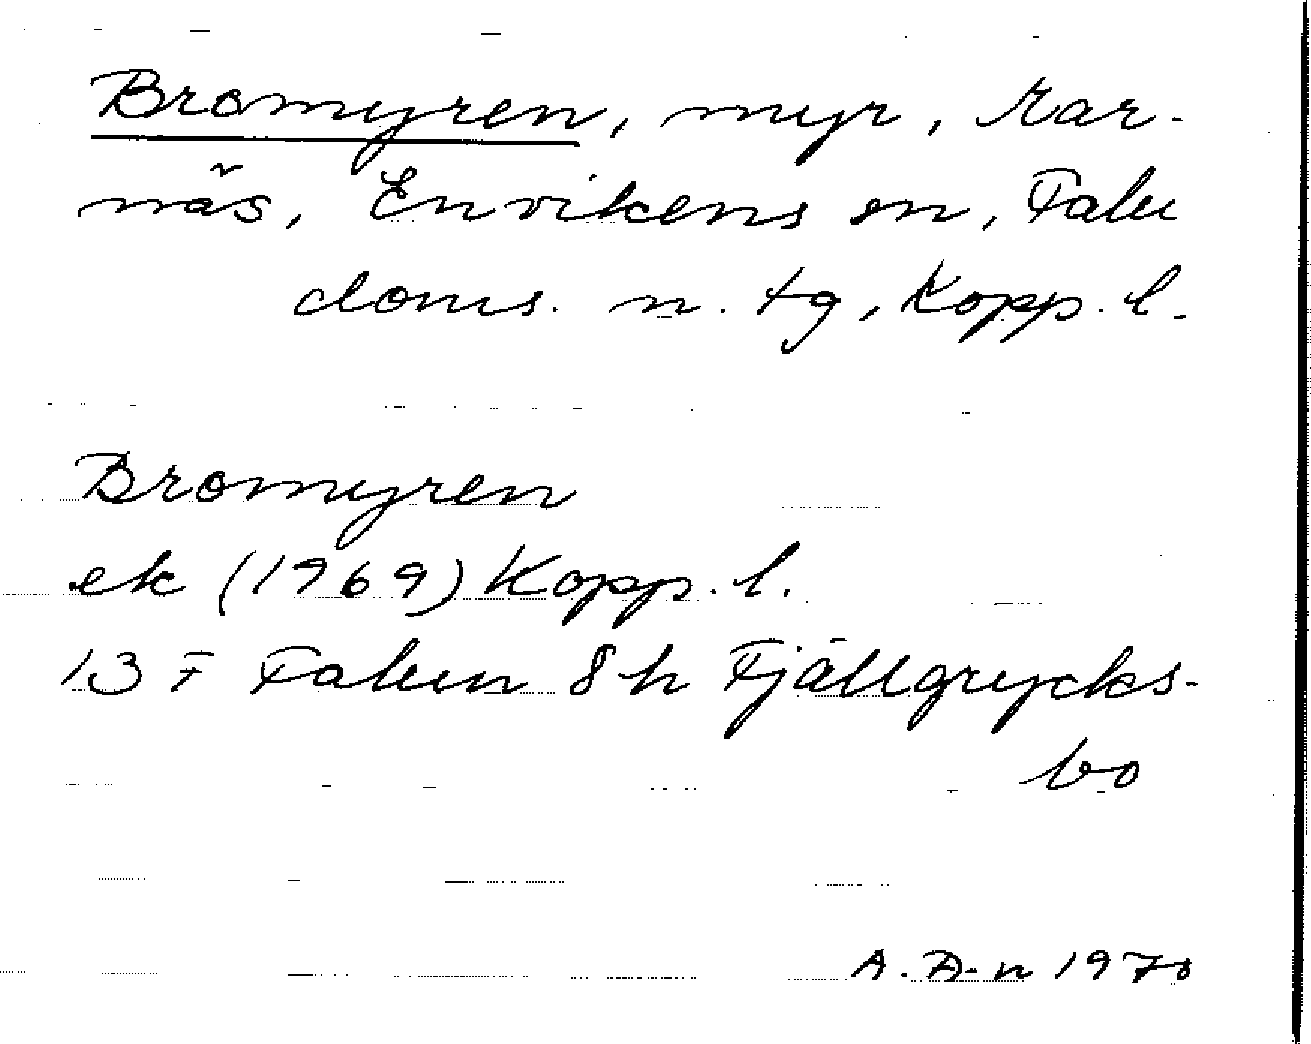 Bromyren, myr, Rar-
näs, Envikens sn, Falu
doms. n. tg, Kopp. l.
Bromyren
ek (1969) Kopp. l.
13 F Falun 8 h Fjällgrycks-
bo
A. D-n 1970